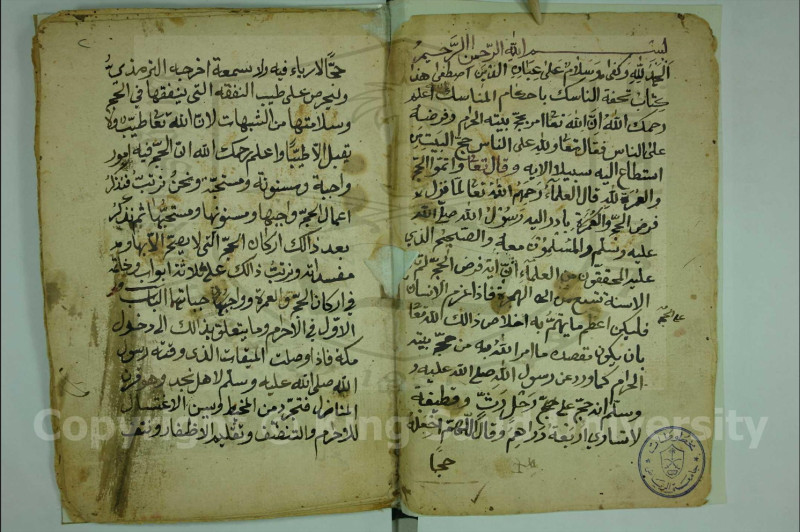 بسم الله الرحمن الرحيم
الحمد لله وكفى وسلام على عباده الذين اصطفى هذا
كتاب تحفة الناسك باحكام المناسك اعلم
رحمك الله ان الله تعا امر بحج بيته الحرام وفرضه
على الناس فقال تعا ولله على الناس حج البيت من
استطاع اليه سبيلا الايه وقال تعا واتموا الحج
والعمرة لله قال العلماء رحمهم الله تعا لما نزل
فرض الحج والعمرة بادر اليه رسول الله صلى الله
عليه وسلم والمسلمون معه والصحيح الذي
عليه المحققون من العلماء ان اية فرض الحج
الاسنة تسع من الهجرة فاذا عزم الانسان
على الحج
فليكن اعظم ما يهتم به اخلاص ذالك لله تعا
بان يكون مقصده ما امر الله به من حج بيته
الحرام كما ورد عن رسول الله صلى الله عليه و
وسلم انه حج على رحل رث وقطيفة
لا تساوي اربعة دراهم وقال اللهم اجعله
حجا
حجا لا رياء فيه ولا سمعة اخرجه الترمذي
وليحرص على طيب النفقه التي ينفقها في الحج
وسلامتها من الشبهات لان الله تعا طيب لا
يقبل الا طيبا واعلم رحمك الله ان الحج فيه امور
واجبة ومسنونة ومستحبة ونحن نرتب فنذكر
اعمال الحج واجبها ومسنونها ومستحبها ثم نذكر
بعد ذالك اركان الحج التي لا يصح الا بها و
مفسداته ونرتب ذالك على ثلاثة ابواب وخاتمة
في اركان الحج والعمرة وواجباتهما الباب
الاول في الاحرام وما يتعلق بذالك الى دخول
مكة فاذا وصلت الميقات الذي وقته رسول
الله صلى الله عليه وسلم لاهل نجد وهو قرن
المنازل فتجرد من المخيط وسن الاغتسال
للاحرام والتنضف وتقليم الاظفار ونتف
Copyright © King Saud University